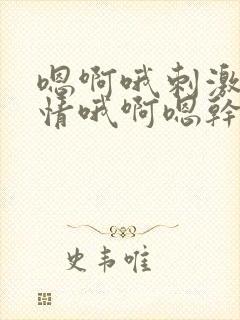 嗯啊哦刺激
情哦啊嗯幹
史韦唯